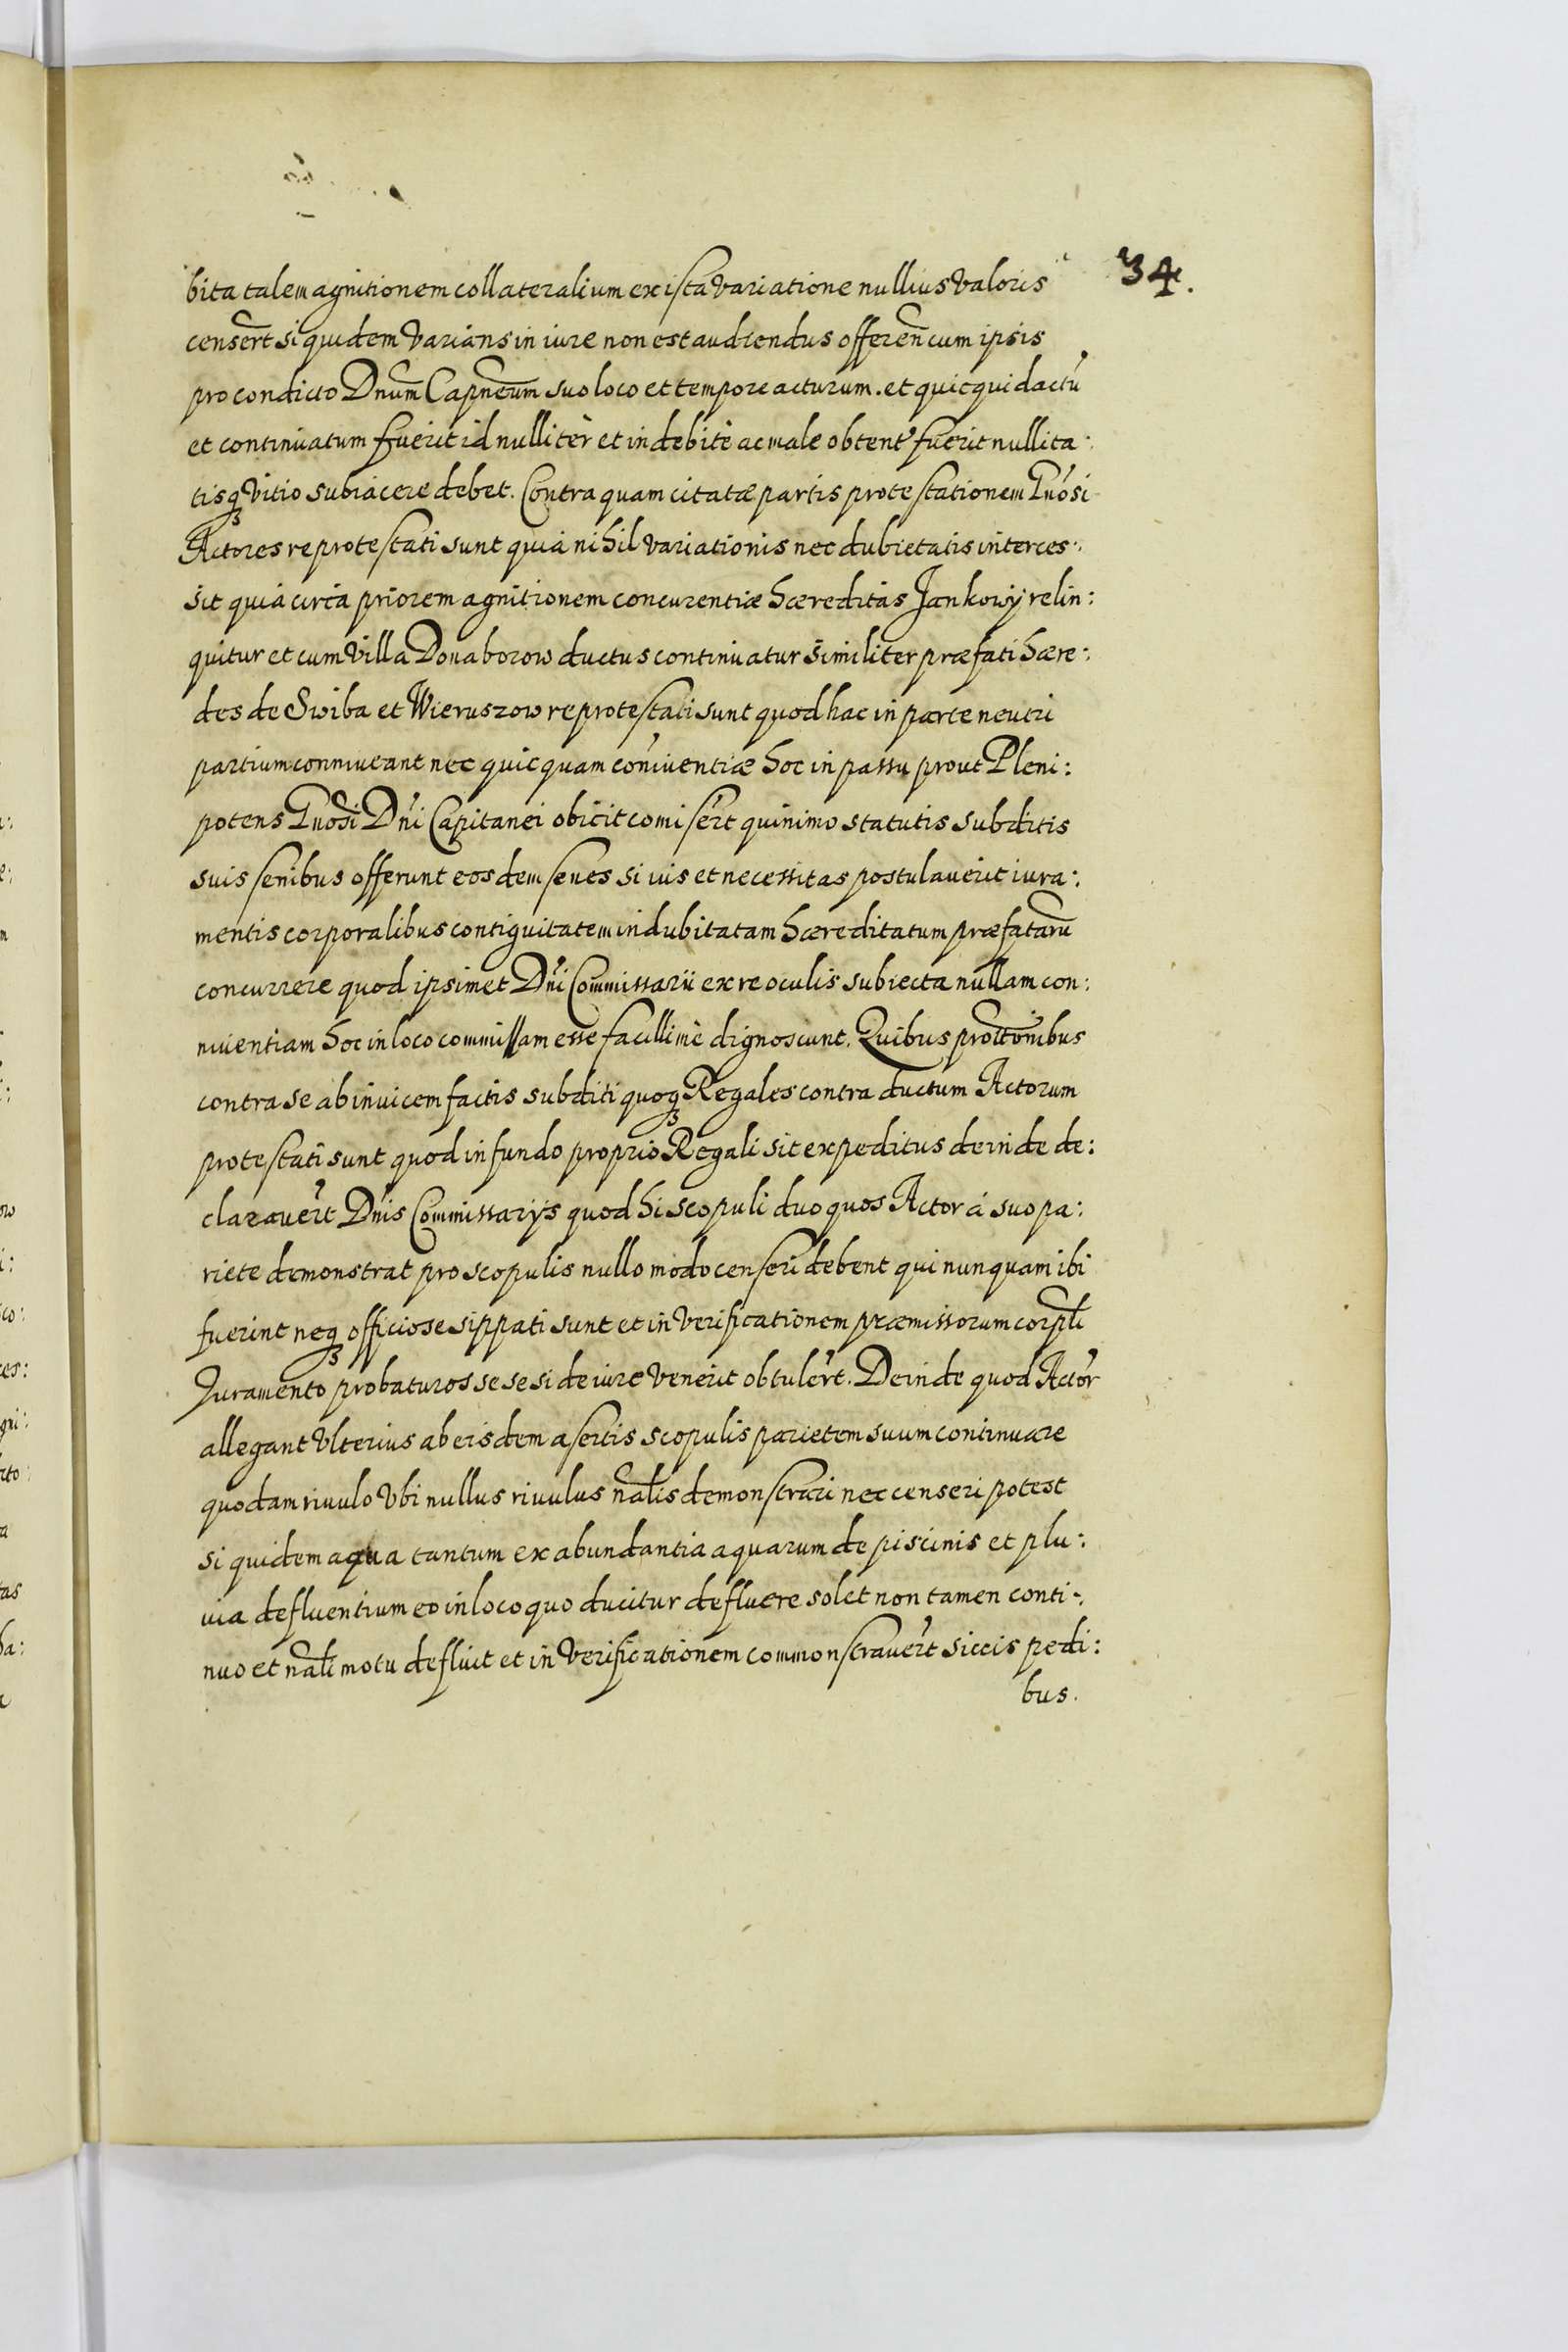 34.
bita talem agnitionem collateralium ex ista variatione nullius valoris
censert si quidem varians in iure non est audiendus offeren cum ipsis
pro condicto Dnum Capneum suo loco et tempore acturum. et quicqui dactu
et continuatum fuerit id nulliter et indebite ac male obtent fuerit nullita:
tisq vitio subiacere debet. Contra quam citatæ partis protestationem Gnosi
Actores reprotestati sunt quia nihil variationis nec dubietatis interces:
sit quia circa priorem agnitionem concurentiæ hæreditas Jankowy relin:
quitur et cum villa Donaborow ductus continuatur similiter præfati hære:
des de Swiba et Wieruszow reprotestati sunt quod hac in parte neutri
partium conniveant nec quicquam coniventiæ hoc in passu prout Pleni:
potens Gnosi Dni Capitanei obicit comisert quinimo statutis subditis
suis senibus offerunt eosdem senes si ius et necessitas postulaverit iura:
mentis corporalibus contiguitatem indubitatam hæreditatum præfataru
concurrere quod ipsimet Dni Commissarii ex re oculis subiecta nullam con:
niuentiam hoc in loco commissam esse facillime dignoscunt. Quibus prottonibus
contra se ab invicem factis subditi quoq Regales contra ductum Actorum
protestati sunt quod in fundo proprio Regali sit expeditus deinde de:
claravert Dnis Commissarys quod hi scopuli duo quos Actor a suo pa:
riete demonstrat pro scopulis nullo modo censeri debent qui nunquam ibi
fuerint neq officiose sippati sunt et in verificationem præmissorum corpli
Juramento probaturos sese si de iure venerit obtulert. Deinde quod Actor
allegant ulterius ab eisdem asertis scopulis parietem suum continuare
quodam rivulo ubi nullus rivulus nalis demonstrari nec censeri potest
si quidem aqua tantum ex abundantia aquarum de piscinis et plu:
via defluentium eo in loco quo ducitur defluere solet non tamen conti:
nuo et nali motu defluit et in verificationem commonstravert siccis pedi:
bus.